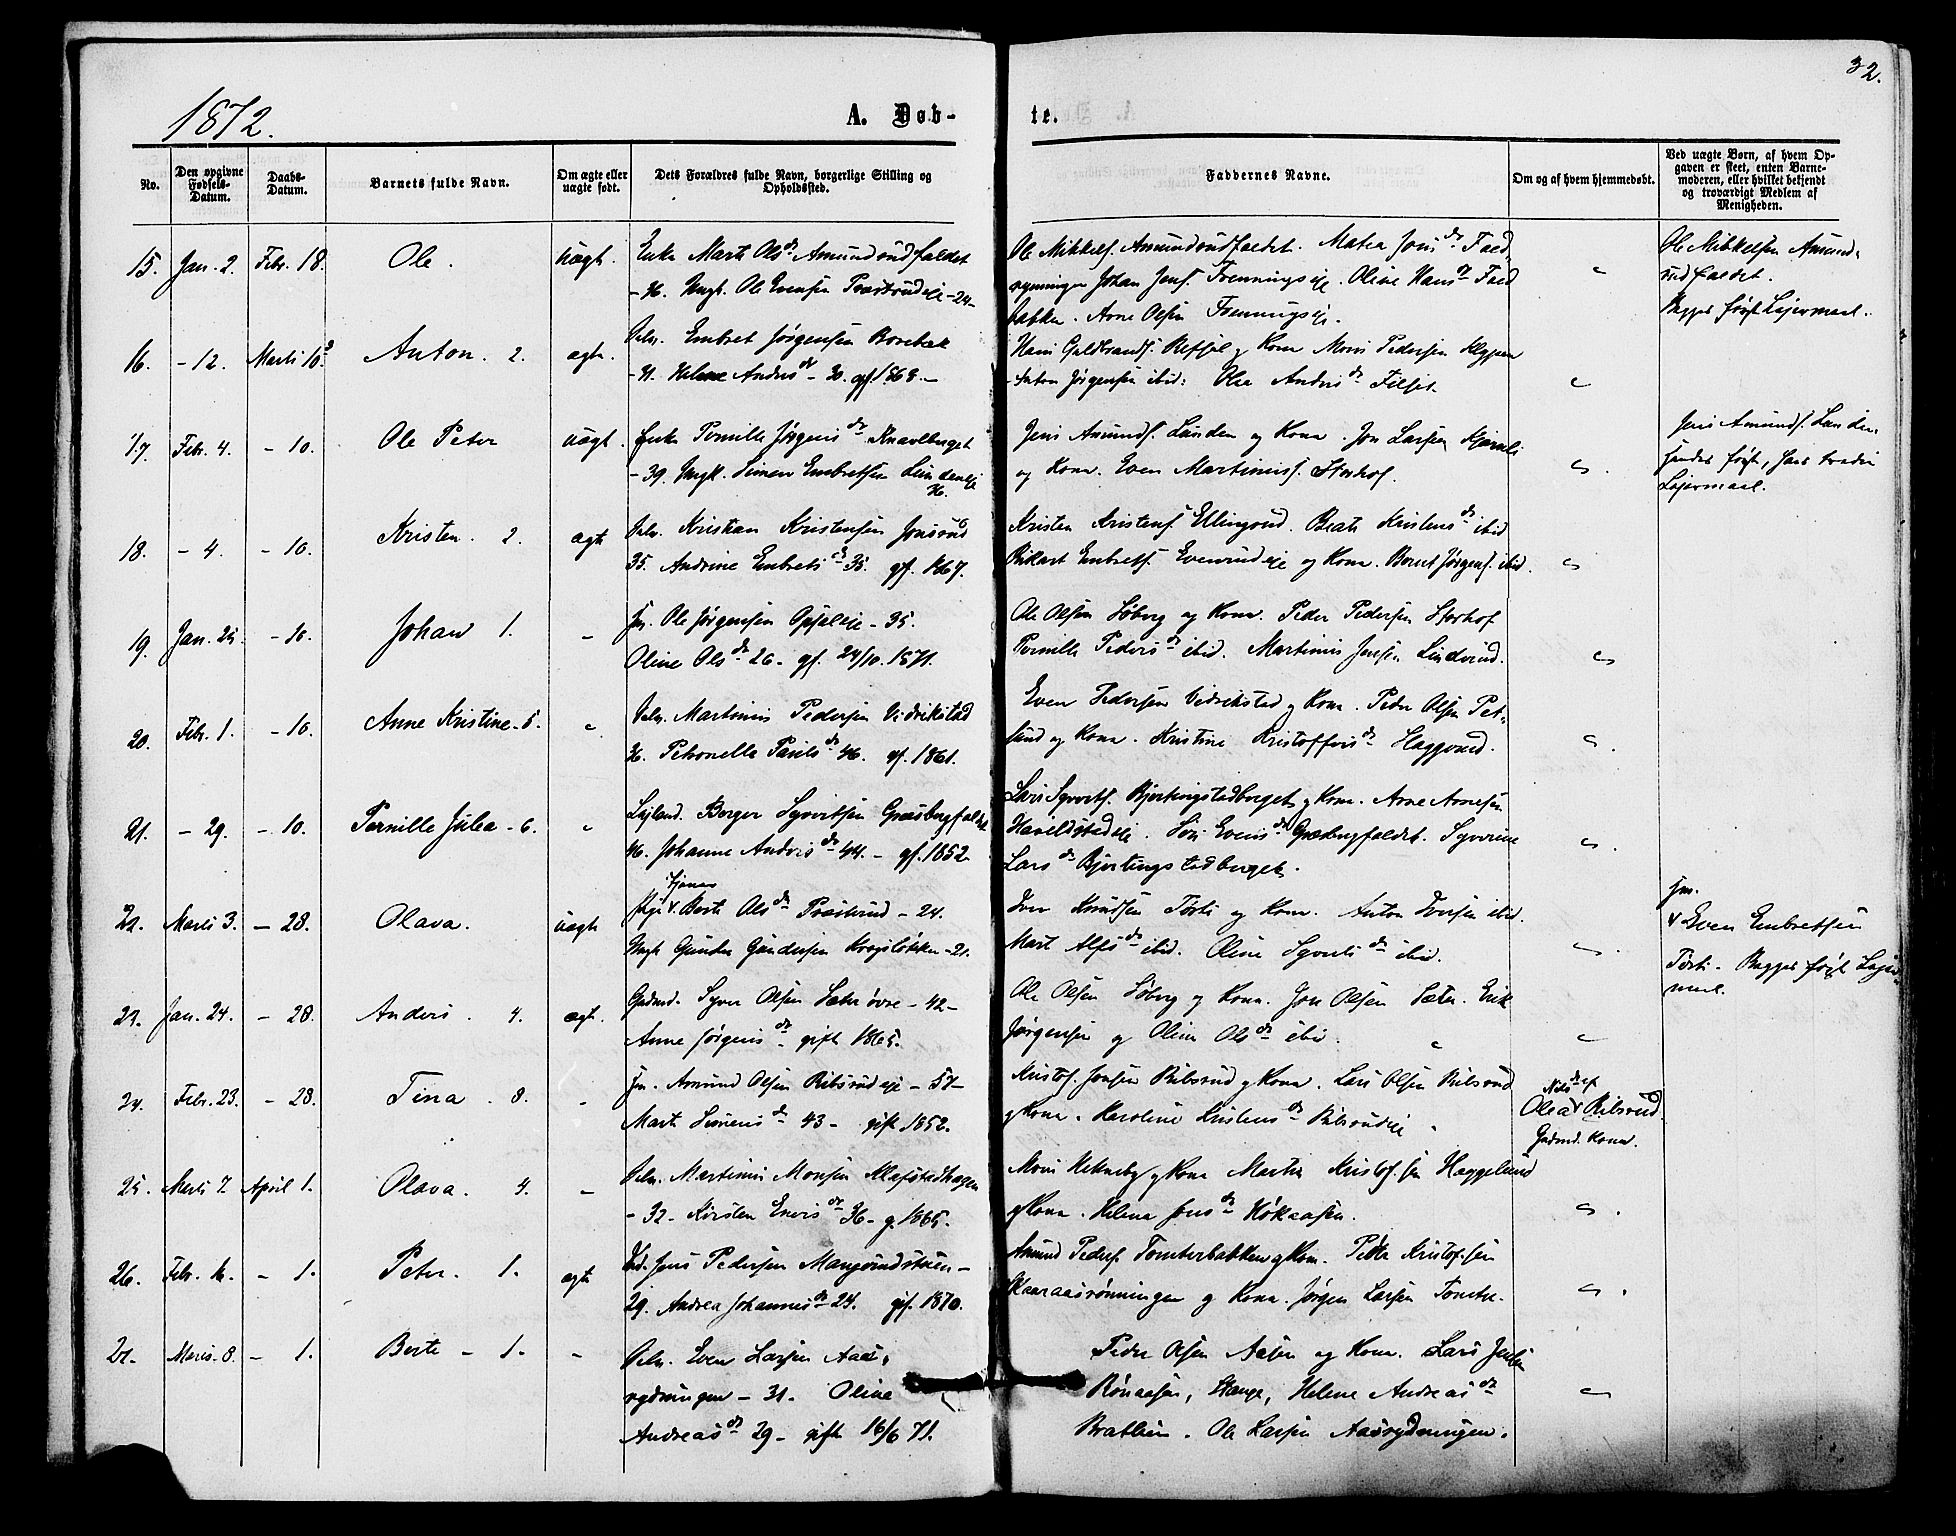 32.
1872.
A. Døb-
te.
No.
Den opgivne Fødsels-Datum.
Daabs-Datum.
Barnets fulde Navn.
Om ægte eller uægte født.
Dets Forældres fulde Navn, borgerlige Stilling og Opholdssted.
Faddernes Navne.
Om og af hvem hjemmedøbt.
Ved uægte Børn, af hvem Opgaven er skeet, enten Barnemoderen, eller hvilket bekjendt og troværdigt Medlem af Menigheden.
15. Jan. 2. Febr. 18. Ole. uægt. Enke Marte Olsdr Amundrudfaldet
Ungk. Ole Evensen Præstrudeie - 24 -
Ole Mikkels. Amundrudfaldet. Matea Jonsdr Fæd-
rydningen Johan Jens. Frenningseie. Oline Hansdr Fæd
bakken. Arne Olsen Frenningseie.
Ole Mikkelsen Amund-
rudfaldet.
Begges første Leiermaal.
16. - 12. Marts 10. Anton. 2. ægt. Selv. Embret Jørgensen Borebæk
Helene Andersdr - 30. gf. 1869. -
Hans Guldbrands. og Kone Mons Pedersen
Anton Jørgensen ibid: Olea Andersdr
17. Febr. 4. - 10. Ole Peter uægt. Enke Pernille Jørgensdr Knavlberget
- 39. Ungk. Simen Embretsen Lundeneie
Jens Amunds. Lunden og Kone. Jon Larsen
og Kone. Even Martinus. Storhof.
Jens Amunds. Lunden.
hendes første, hans tredie
Leiermaal.
18. - 4. - 10. Kristen. 2. ægte Selv. Kristian Kristensen Jonsrud
35. Andrine Embretsdr 35. gf. 1867.
Kristen Kristens. Ellingsrud. Beate Kristensdr ibid
Rikart Embrets. Evenrudeie og Kone. Bernt Jørgens. ibid.
19. Jan. 25. - 10. Johan 1. - Im. Ole Jørgensen Opsaleie - 35.
Oline Olsdr 26. gf. 24/10. 1871.
Ole Olsen Søberg og Kone. Peder Pedersen Storhof
Pernille Pedersdr ibid. Martinus Jensen Linderud.
20. Febr. 1. - 10. Anne Kristine - 5. Selv. Martinus Pedersen Vidrikstad
Petronelle Paulsdr 46. gf. 1861.
Even Pedersen Vidrikstad og Kone. Peder Olsen Pet-
lund og Kone. Kristine Kristoffersdr Haggerud.
21. - 29. - 10. Pernille Julea - 6. Leiland. Berger Syvertsen Græsbergfaldet
Johanne Andersdr 44. - gf. 1852
Lars Syverts. Bjertingstadberget og Kone. Arne Arnesen
Haveldstadeie. Evensdr Græsbergfaldet. Syverine
Larsdr Bjertingstadberget.
22. Marts 3. - 28. Olava. uægte Pige Berte Olsdr Præstrud - 24.
Ungk Gunder Gundersen Krogsløkken - 21.
Iver Knudsen Torti og Kone. Anton Iversen ibid.
Mart Alfsdr ibid. Oline Syvertsdr ibid.
Im.
Even Embretsen
Torti. Begges første Leier-
maal.
23. Jan. 24. - 28. Anders. 4. ægt. Gaardmd. Syver Olsen Sæter øvre - 42 -
Anne Jørgensdr gift 1865.
Ole Olsen Søberg og Kone. Jon Olsen Sæter. Erik
Jørgensen og Oline Olsdr ibid.
24. Febr. 23. - 28. Tina. 8. - Im. Amund Olsen Ribsrudeie - 57 -
Mart Simensdr 43 - gift 1852.
Kristof. Jonsen Ribsrud og Kone. Lars Olsen Ribsrud
og Kone. Karoline Kristensdr Ribsrudeie
Nilsdr
Olea Ribsrud
Gaardmd. Kone.
25. Marts 7. April 1. Olava. 4. - Selv. Martinus Monsen Alafstadhagen
- 32 - Kirsten Eversdr 36 - g. 1865.
Mons og Kone Martin Kristofsen Haggelund
og Kone. Helena Jonsdr Kokaasen.
26. Febr. 16. - 1. Peter. 1. ægte Jens Pedersen Mangrudstuen -
29. Andrea Johannesdr 24. gif. 1870.
Amund Peders. Tomterbakken og Kone. Peter Kristofsen
Skaaraasrønningen og Kone. Jørgen Larsen Tomter.
27. Marts. 8. - 1. Berte - 1. - Selv. Even Larsen Aas-
rydningen - 31. Oline
Andreasdr 29 - gift 16/6 71.
Peder Olsen Aasen og Kone. Lars Jensen
Rønaasen, Stange, Helene Andreasdr
Bratlien. Ole Larsen Aasrydningen.